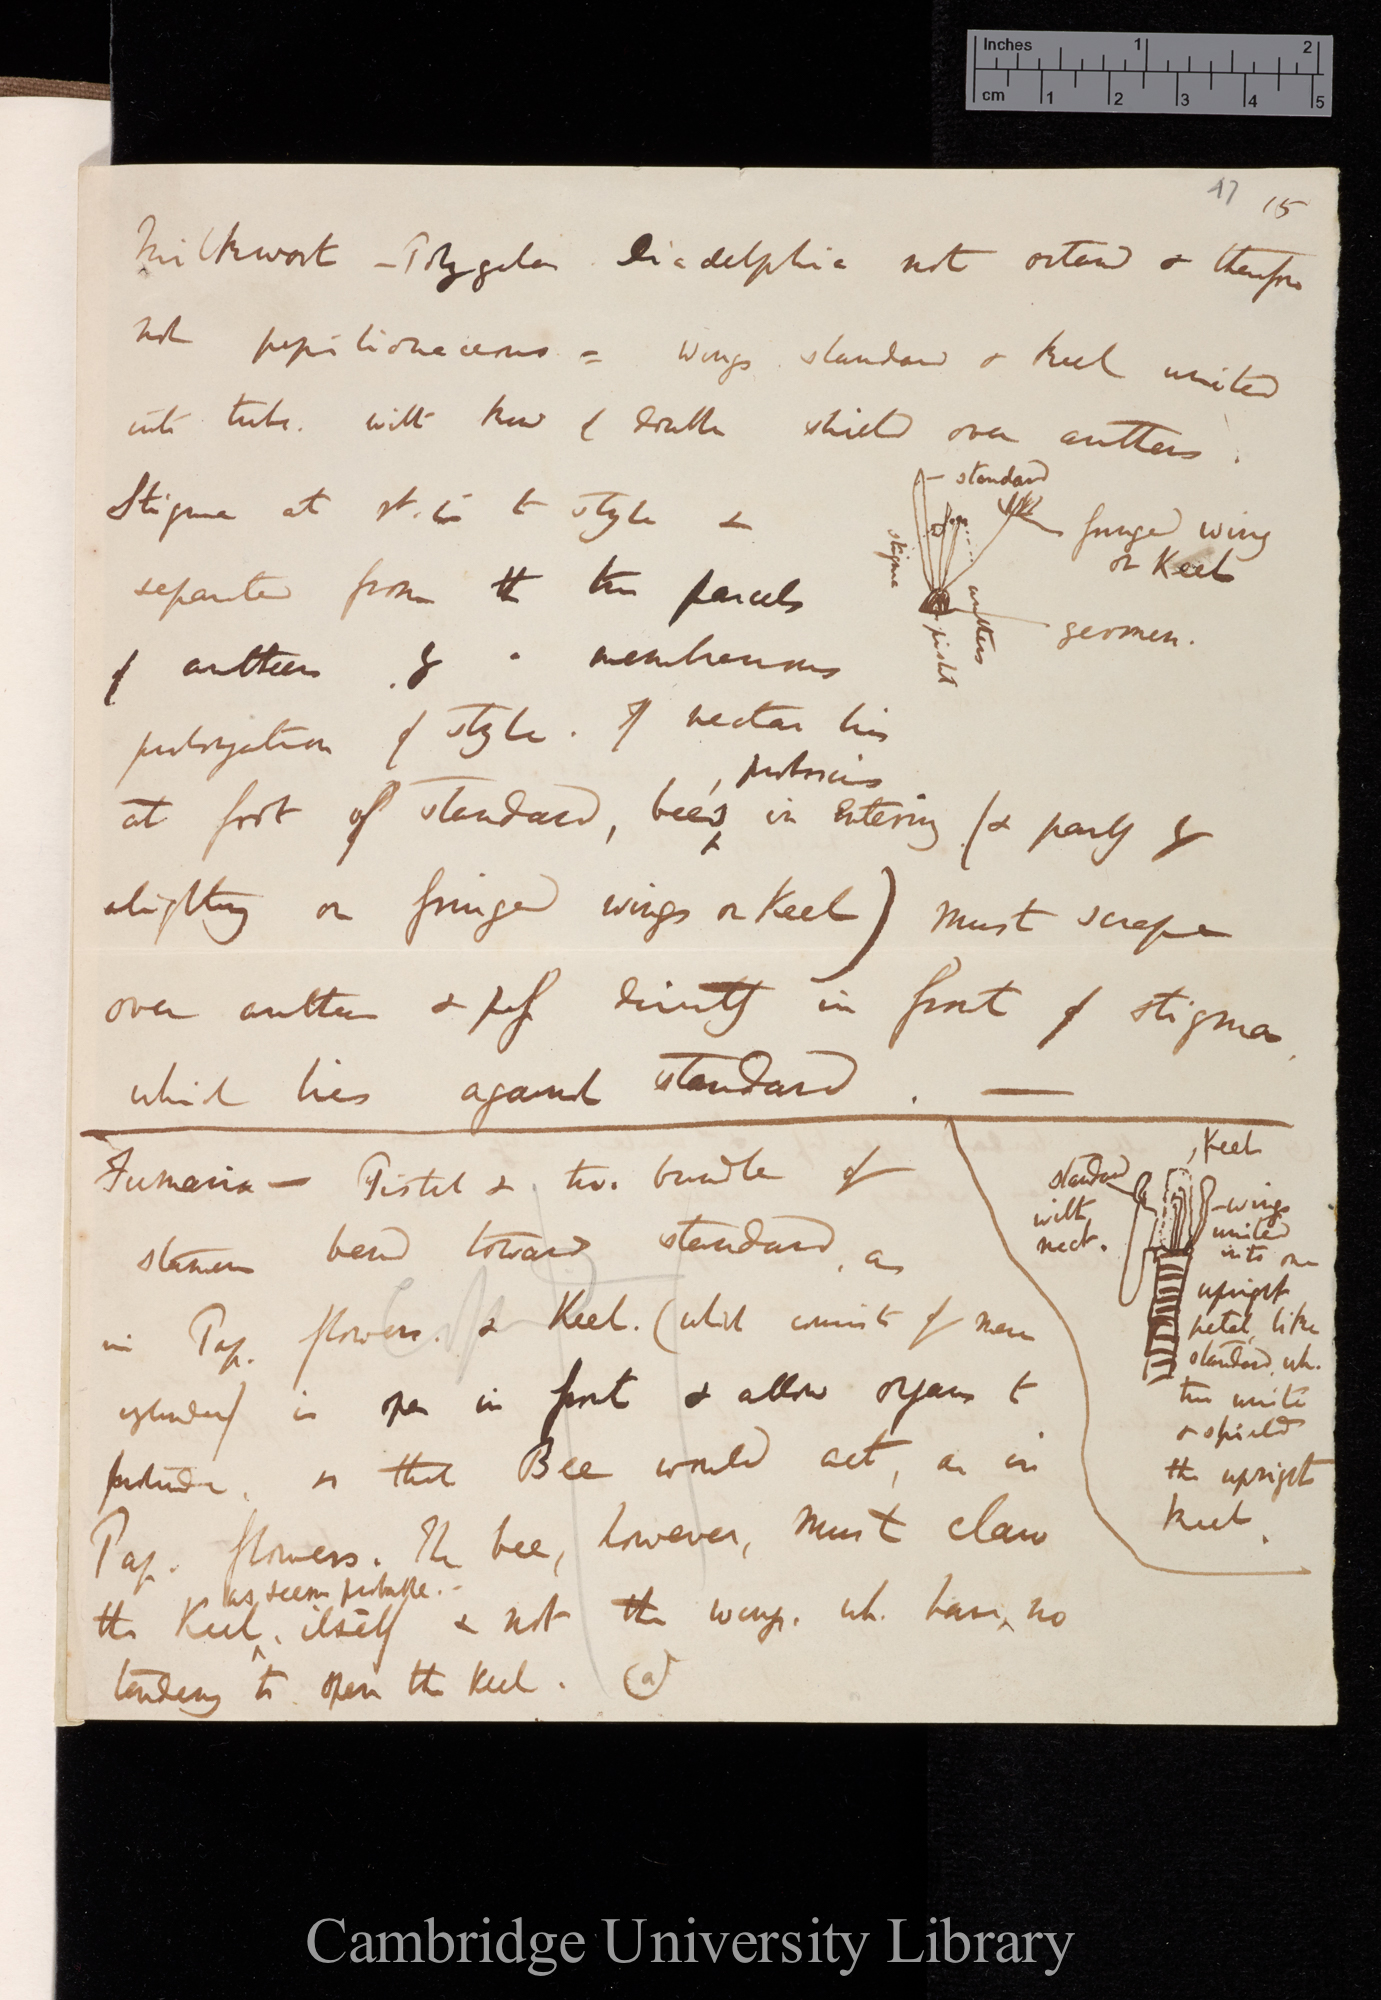 Inches 1 2
cm 1 2 3 4 5
17 15
Milkwort – Polygala Diadelphia not octand & therefore
not papilionaceous = wings standard & Keel united
into tube. with kind of double shield over anthers.
Stigma at rt. to style &
separated from the two parcels
of anthers by a membranous
prolongation of style. If nectar lies
proboscis
at foot of standard, bees in entering (& partly by
alighting on fringed wings or Keel) must scrape
over anthers & pass directly in front of stigma,
which lies against standard. —
– standard
fringed wing
or Keel
stigma
anthers
pistil
germen.
Fumaria — Pistil & two bundles of
stamens bend toward standard, as
in Pap. flowers. & Keel. (which consists of
cylinder) is open in front & allow organs to
protrude, so that Bee would act, as in
Pap. flowers. The bee, however, must claw
as seems probable. –
the Keel, itself & not the wings. wh. have no
tendency to open the Keel. (a)
Keel
standard
with
nect.
– wings
united
into one
upright
petal, like
standard, wh.
thus unite
& shield
the upright
Keel.
Cambridge University Library